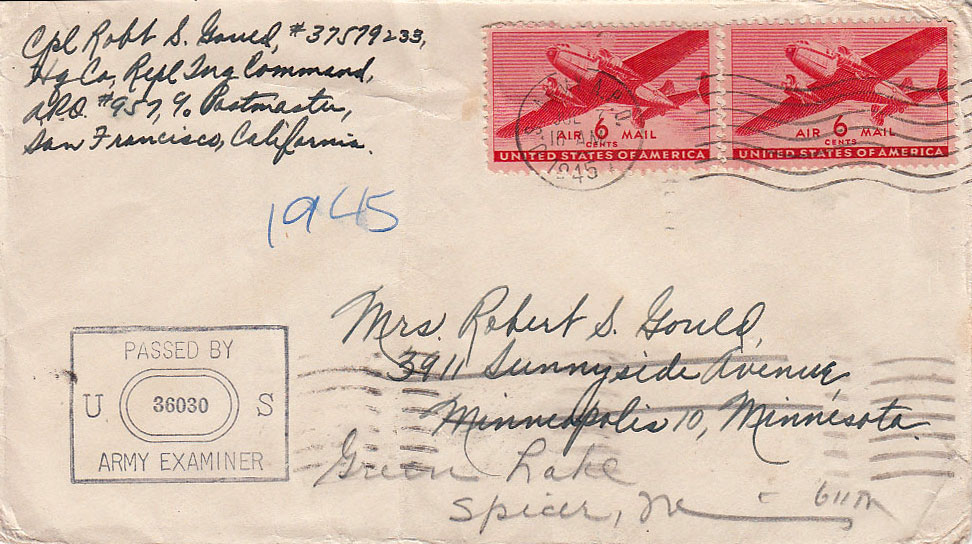 Cpl Robt S. Gould, #37579233,
Hq Co, Repl Tng Command,
APO. #957, % Postmaster,
San Francisco, California.
AIR 6 MAIL
CENTS
UNITED STATES OF AMERICA
AIR 6 MAIL
CENTS
UNITED STATES OF AMERICA
10 AM
1945
1945
Mrs. Robert S. Gould,
3911 Sunnyside Avenue,
Minneapolis 10, Minnesota.
Green Lake
Spicer,
PASSED BY
U 36030 S
ARMY EXAMINER